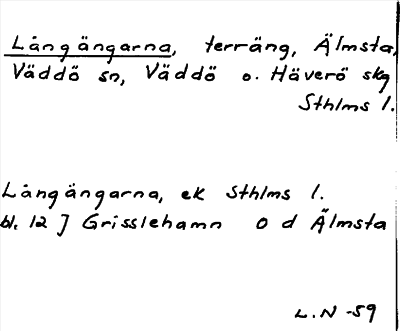 Långängarna, terräng, Älmsta,
Väddö sn, Väddö o. Häverö skg
Sthlms l.
Långängarna, ek Sthlms l.
bl. 12 J Grisslehamn O d Älmsta
L.N -59